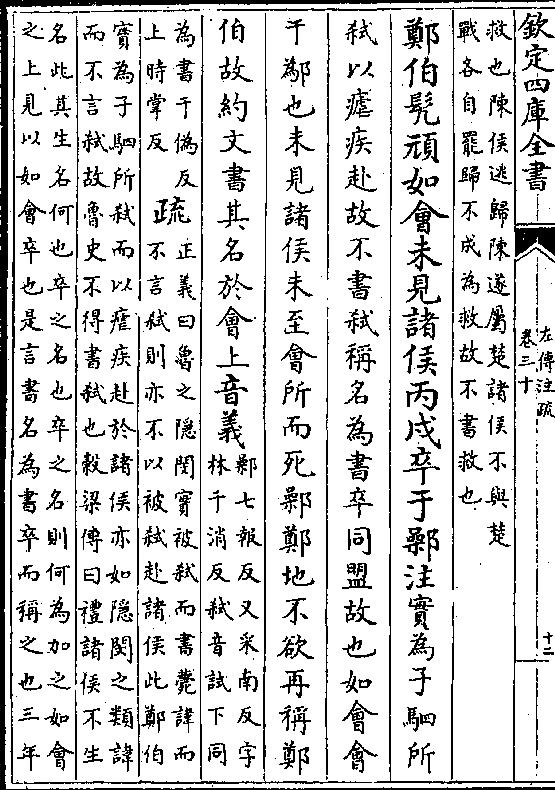 欽定四庫全書
左傳注疏
卷三十
十二
救也陳侯逃歸陳遂屬楚諸侯不與楚
戰各自罷歸不成為救故不書救也
鄭伯髠頑如會未見諸侯丙戌卒于鄵注實為子駟所
弒以瘧疾赴故不書弒稱名為書卒同盟故也如會會
于鄬也未見諸侯未至會所而死鄵鄭地不欲再稱鄭
伯故約文書其名於會上音義
鄵七報反又采南反字
林千消反弒音試下同
為書于偽反
上時掌反
疏
正義曰魯之隱閔實被弒而書薨諱而
不言弒則亦不以被弒赴諸侯此鄭伯
實為子駟所弒而以瘧疾赴於諸侯亦如隱閔之類諱
而不言弒故魯史不得書弒也穀梁傳曰禮諸侯不生
名此其生名何也卒之名也卒之名則何為加之如會
之上見以如會卒也是言書名為書卒而稱之也三年